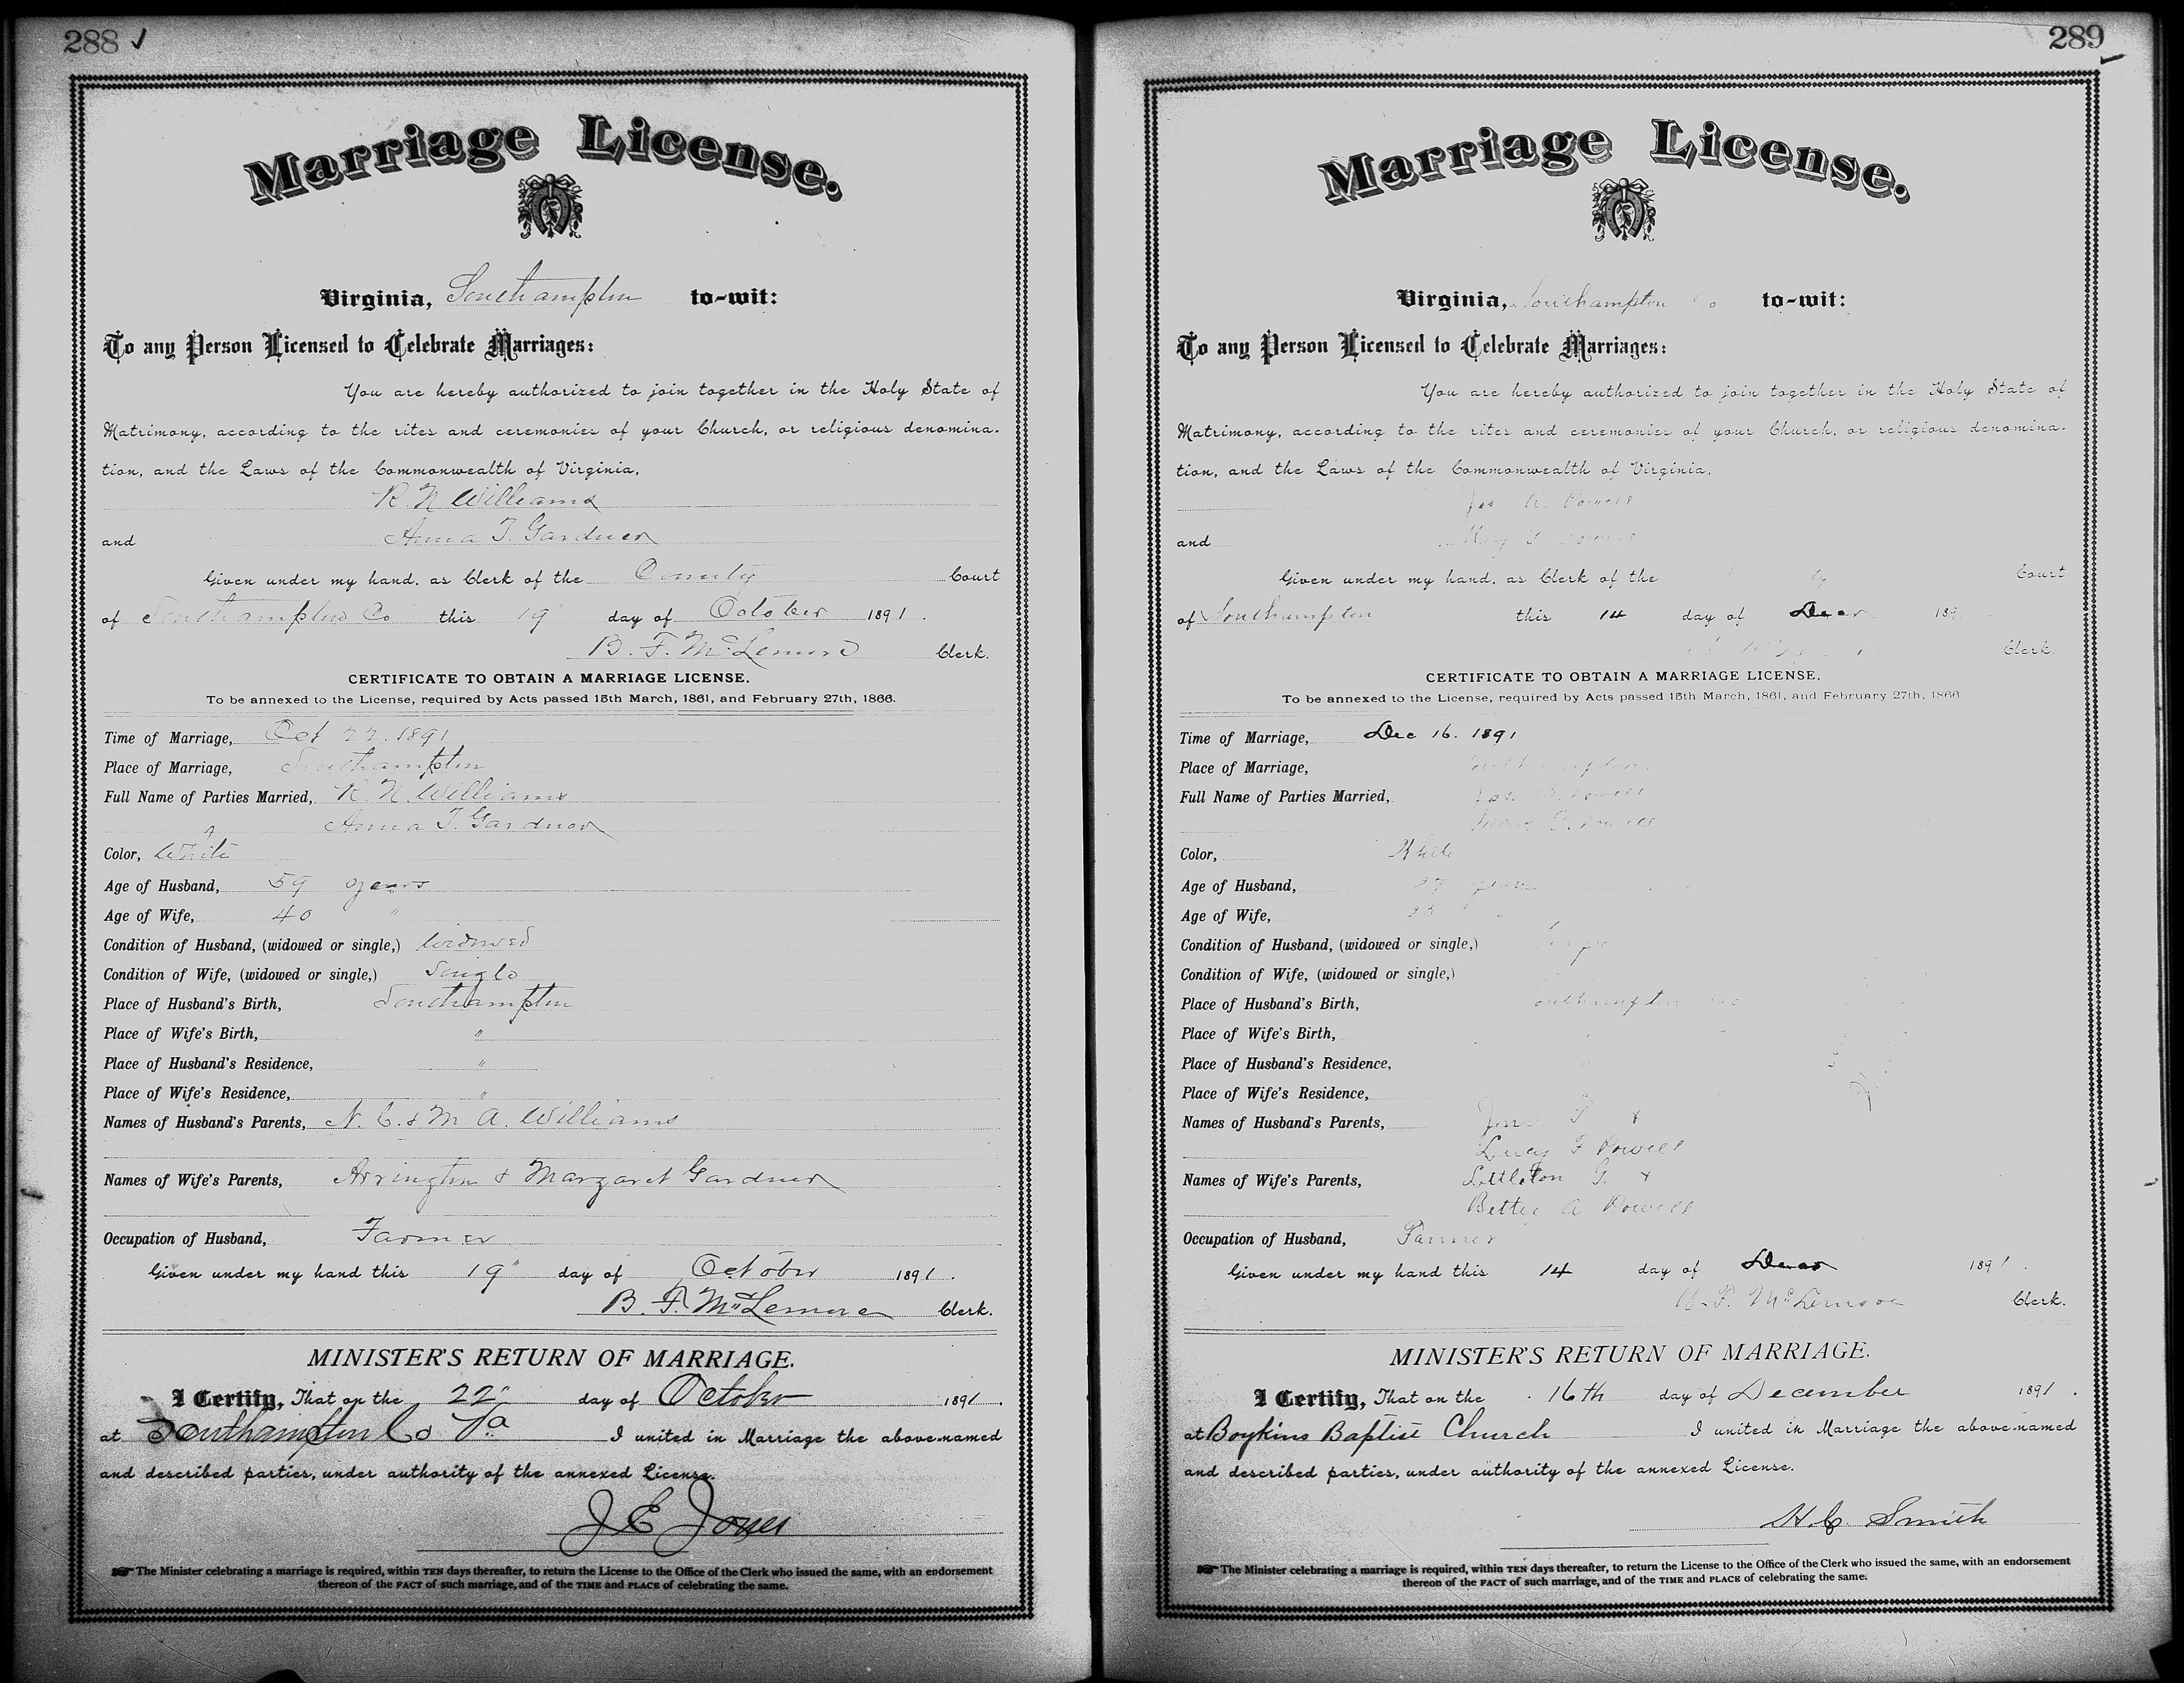 288 ✓
Marriage License.
Virginia, Southampton to-wit:
To any Person Licensed to Celebrate Marriages:
You are hereby authorized to join together in the Holy State of
Matrimony, according to the rites and ceremonies of your Church, or religious denomina-
tion, and the Laws of the Commonwealth of Virginia,
R. N. Williams
and Anna T. Gardner
Given under my hand, as Clerk of the County Court
of Southampton Co this 19" day of October 1891.
B. F. McLemore Clerk.
CERTIFICATE TO OBTAIN A MARRIAGE LICENSE.
To be annexed to the License, required by Acts passed 15th March, 1861, and February 27th, 1866.
Time of Marriage, Oct 22. 1891
Place of Marriage, Southampton
Full Name of Parties Married, R. N. Williams
Anna T. Gardner
Color, White
Age of Husband, 59 years
Age of Wife, 40 "
Condition of Husband, (widowed or single,) Widowed
Condition of Wife, (widowed or single,) Single
Place of Husband's Birth, Southampton
Place of Wife's Birth, "
Place of Husband's Residence, "
Place of Wife's Residence, "
Names of Husband's Parents, N. C. & M. A. Williams
Names of Wife's Parents, Arrington & Margaret Gardner
Occupation of Husband, Farmer
Given under my hand this 19" day of October 1891.
B. F. McLemore Clerk.
MINISTER'S RETURN OF MARRIAGE.
I Certify, That on the 22" day of October 1891.
at Southampton Co Va I united in Marriage the above-named
and described parties, under authority of the annexed License.
J E Jones
☛ The Minister celebrating a marriage is required, within TEN days thereafter, to return the License to the Office of the Clerk who issued the same, with an endorsement
thereon of the FACT of such marriage, and of the TIME and PLACE of celebrating the same.
289
Marriage License.
Virginia, Southampton Co to-wit:
To any Person Licensed to Celebrate Marriages:
You are hereby authorized to join together in the Holy State of
Matrimony, according to the rites and ceremonies of your Church, or religious denomina-
tion, and the Laws of the Commonwealth of Virginia,
Powell
and Powell
Given under my hand, as Clerk of the Court
of Southampton this 14 day of 189
Clerk.
CERTIFICATE TO OBTAIN A MARRIAGE LICENSE.
To be annexed to the License, required by Acts passed 15th March, 1861, and February 27th, 1866
Time of Marriage, Dec 16. 1891
Place of Marriage, Southampton
Full Name of Parties Married, Powell
Powell
Color, White
Age of Husband, 27 years
Age of Wife,
Condition of Husband, (widowed or single,)
Condition of Wife, (widowed or single,)
Place of Husband's Birth, Southampton
Place of Wife's Birth,
Place of Husband's Residence,
Place of Wife's Residence,
Names of Husband's Parents, &
Lucy F Powell
Names of Wife's Parents, Littleton G. &
Bettie A Powell
Occupation of Husband, Farmer
Given under my hand this 14 day of 1891.
B. F. McLemore Clerk.
MINISTER'S RETURN OF MARRIAGE.
I Certify, That on the 16th day of December 1891.
at Boykins Baptist Church I united in Marriage the above-named
and described parties, under authority of the annexed License.
H. C. Smith
☛ The Minister celebrating a marriage is required, within TEN days thereafter, to return the License to the Office of the Clerk who issued the same, with an endorsement
thereon of the FACT of such marriage, and of the TIME and PLACE of celebrating the same.